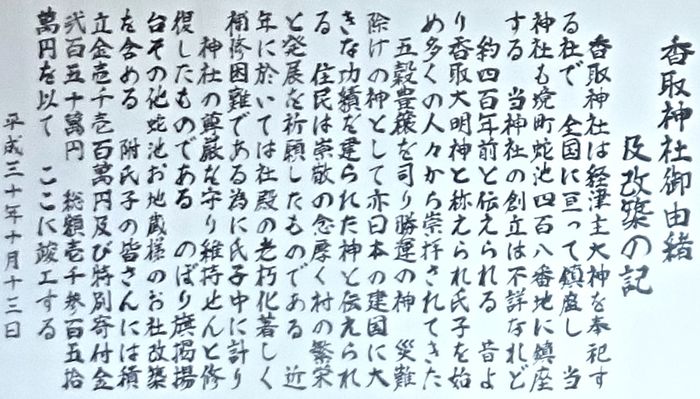 香取神社御由緒
及改築の記
香取神社は経津主大神を奉祀す
る社で　全国に亘って鎮座し　当
神社も境町蛇池四百八番地に鎮座
する　当神社の創立は不詳なれど
約四百年前と伝えられる　昔よ
り香取大明神と称えられ氏子を始
め多くの人々から崇拝されてきた
五穀豊穣を司り勝運の神　災難
除けの神として亦日本の建国に大
きな功績を建られた神と伝えられ
る　住民は崇敬の念厚く村の繁栄
と発展を祈願したものである　近
年に於いては社殿の老朽化著しく
補修困難である為に氏子中に計り
神社の尊厳を守り維持せんと修
復したものである　のぼり旗掲揚
台その他蛇池お地蔵様のお社改築
を含める　附氏子の皆さんには積
立金壱千壱百萬円及び特別寄付金
弐百五十萬円　総額壱千参百五拾
萬円を以て　ここに竣工する
平成三十年十月十三日